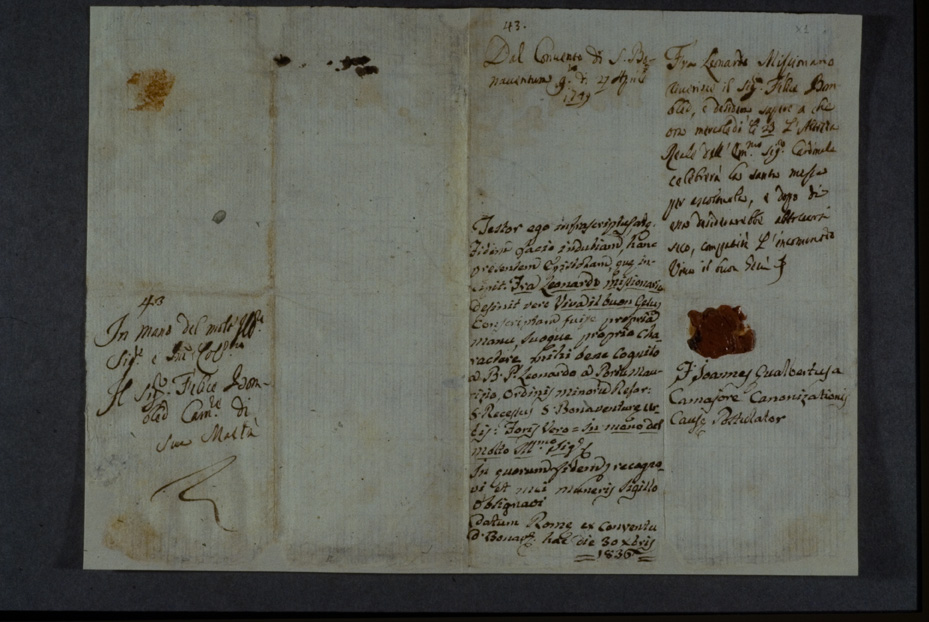 43.
Dal Convento di S. Bo-
naventura q.to dì 27 Aprile
1749
Fra Leonardo Missionario
riverisce il Sig.r Felice Bom-
bled, e desidera sapere a che
ora mercoledì li 23 L'Altezza
Reale dell' Em.mo Sig.r Cardinale
celebrerà la santa messa
per ascoltarla, e dopo di
seco, L'incomodo
Viva il buon Gesù
Testor ego infrascriptus
fidem facio indubiam, hanc
presentem Epistolam, que in-
cipit: Fra Leonardo missionario
definit vero Viva il buon Gesu
Conscriptam fuisse propria
manu, suoque proprio cha-
ractere mihi bene cognito
a B. P. Leonardo a Portu Mau-
ritio, Ordinis minorū Refor:
S. Recessus S. Bonaventure Ur-
bis: Foris vero = In mano del
molto Ill.mo Sig.e
In quorum fidem recogno-
vi et mei muneris sigillo
obsignavi
Datum Rome ex Conventu
S. Bonav. hac die 30 Xbris
1836
F. Joannes Gualbertus a
Campfore Canonizationis
Cause Postulator
43
In mano del molt' Ill.e
Sig.e e Col.mo
Il Sig.r Felice Bom-
bled Cam.re di
Sua Maltà
X1